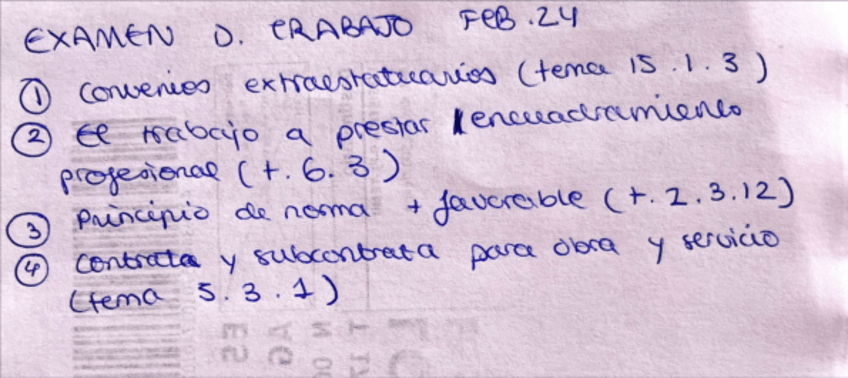 EXAMEN D. TRABAJO FEB.24
① Convenios extraestatuarios (tema 15.1.3)
② El trabajo a prestar / encuadramiento
profesional (t. 6.3)
③ principio de norma + favorable (t. 2.3.12)
④ Contrata y subcontrata para obra y servicio
(tema 5.3.1)